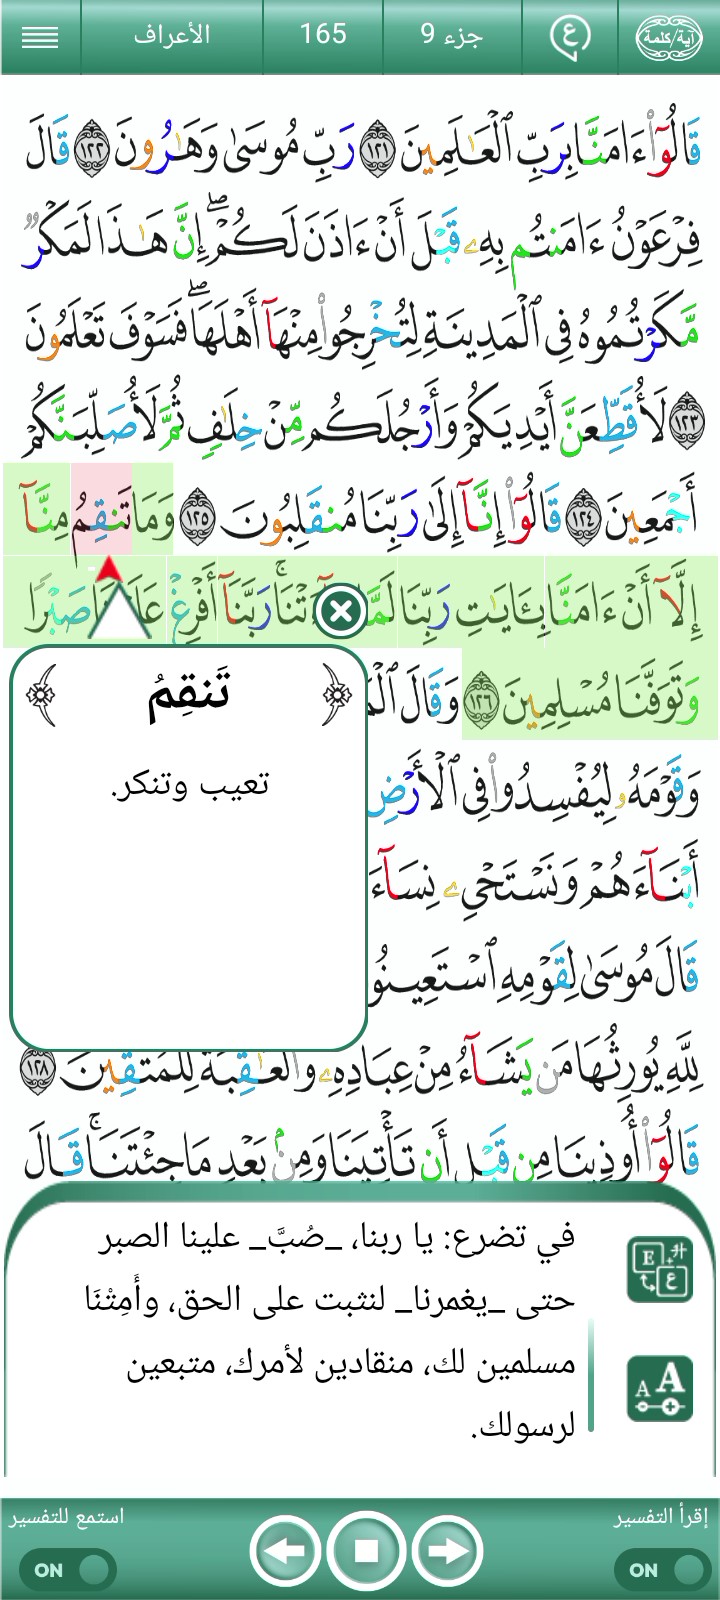 آية/كلمة
ع
جزء 9
165
الأعراف
قَالُوٓا۟ ءَامَنَّا بِرَبِّ ٱلْعَـٰلَمِينَ ١٢١ رَبِّ مُوسَىٰ وَهَـٰرُونَ ١٢٢ قَالَ
فِرْعَوْنُ ءَامَنتُم بِهِۦ قَبْلَ أَنْ ءَاذَنَ لَكُمْ ۖ إِنَّ هَـٰذَا لَمَكْرٌ
مَّكَرْتُمُوهُ فِى ٱلْمَدِينَةِ لِتُخْرِجُوا۟ مِنْهَآ أَهْلَهَا ۖ فَسَوْفَ تَعْلَمُونَ
١٢٣ لَأُقَطِّعَنَّ أَيْدِيَكُمْ وَأَرْجُلَكُم مِّنْ خِلَـٰفٍ ثُمَّ لَأُصَلِّبَنَّكُمْ
أَجْمَعِينَ ١٢٤ قَالُوٓا۟ إِنَّآ إِلَىٰ رَبِّنَا مُنقَلِبُونَ ١٢٥ وَمَا تَنقِمُ مِنَّآ
إِلَّآ أَنْ ءَامَنَّا بِـَٔايَـٰتِ رَبِّنَا لَمَّا رَبَّنَآ أَفْرِغْ صَبْرًا
وَتَوَفَّنَا مُسْلِمِينَ ١٢٦ وَقَالَ
وَقَوْمَهُۥ لِيُفْسِدُوا۟ فِى ٱلْأَرْضِ
أَبْنَآءَهُمْ وَنَسْتَحْىِۦ نِسَآءَ
قَالَ مُوسَىٰ لِقَوْمِهِ ٱسْتَعِينُو
لِلَّهِ يُورِثُهَا مَن يَشَآءُ مِنْ عِبَادِهِۦ وَٱلْعَـٰقِبَةُ لِلْمُتَّقِينَ ١٢٨
قَالُوٓا۟ أُوذِينَا مِن قَبْلِ أَن تَأْتِيَنَا وَمِنۢ بَعْدِ مَا جِئْتَنَا ۚ قَالَ
تَنقِمُ
تعيب وتنكر.
في تضرع: يا ربنا، _صُبَّ_ علينا الصبر
حتى _يغمرنا_ لنثبت على الحق، وأَمِتْنَا
مسلمين لك، منقادين لأمرك، متبعين
لرسولك.
E ع
A A
إقرأ التفسير
استمع للتفسير
ON
ON